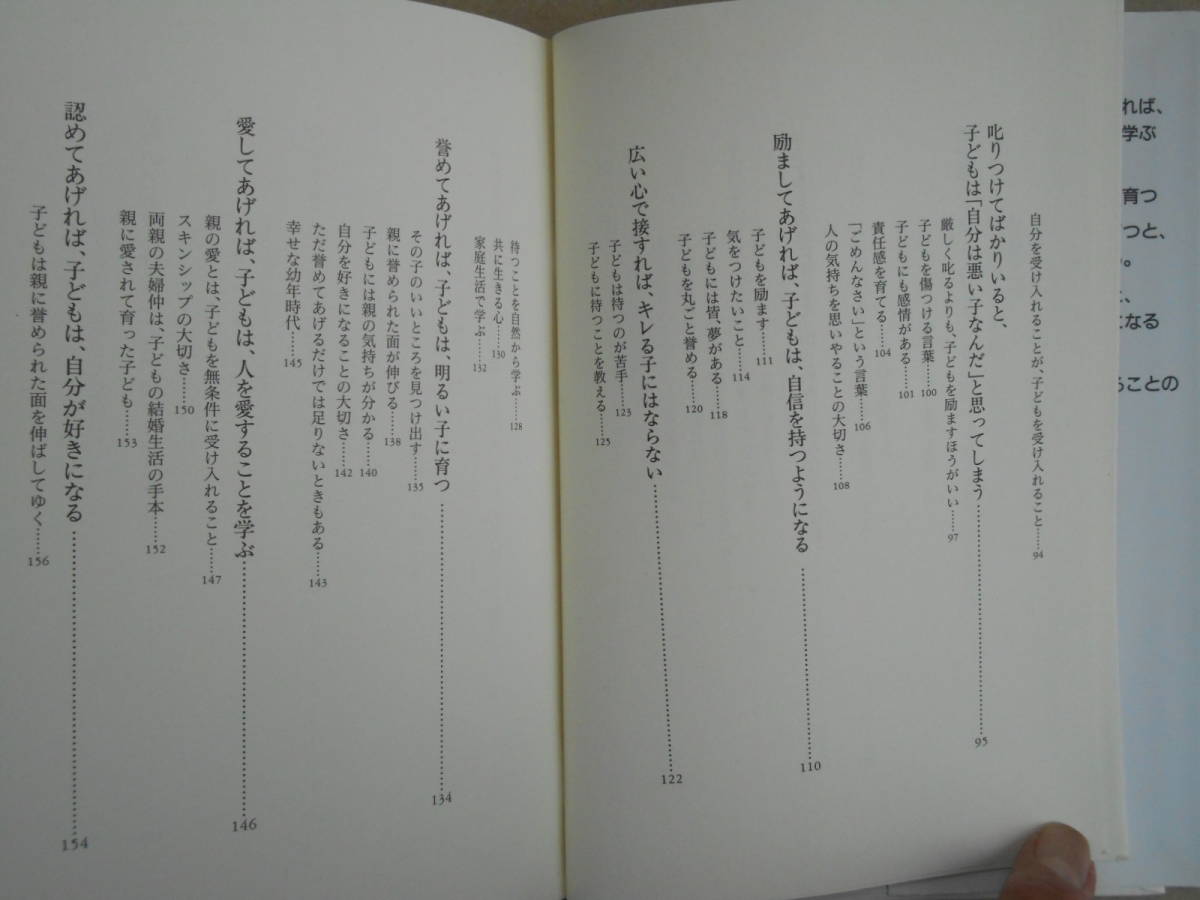 れば、
学ぶ
育つ
つと、
。
、
になる
ることの
自分を受け入れることが、子どもを受け入れること……94
叱りつけてばかりいると、
子どもは「自分は悪い子なんだ」と思ってしまう……95
厳しく叱るよりも、子どもを励ますほうがいい……97
子どもを傷つける言葉……100
子どもにも感情がある……101
責任感を育てる……104
「ごめんなさい」という言葉……106
人の気持ちを思いやることの大切さ……108
励ましてあげれば、子どもは、自信を持つようになる……110
子どもを励ます……111
気をつけたいこと……114
子どもには皆、夢がある……118
子どもを丸ごと誉める……120
広い心で接すれば、キレる子にはならない……122
子どもは待つのが苦手……123
子どもに待つことを教える……125
待つことを自然から学ぶ……128
共に生きる心……130
家庭生活で学ぶ……132
誉めてあげれば、子どもは、明るい子に育つ……134
その子のいいところを見つけ出す……135
親に誉められた面が伸びる……138
子どもには親の気持ちが分かる……140
自分を好きになることの大切さ……142
ただ誉めてあげるだけでは足りないときもある……143
幸せな幼年時代……145
愛してあげれば、子どもは、人を愛することを学ぶ……146
親の愛とは、子どもを無条件に受け入れること……147
スキンシップの大切さ……150
両親の夫婦仲は、子どもの結婚生活の手本……152
親に愛されて育った子ども……153
認めてあげれば、子どもは、自分が好きになる……154
子どもは親に誉められた面を伸ばしてゆく……156